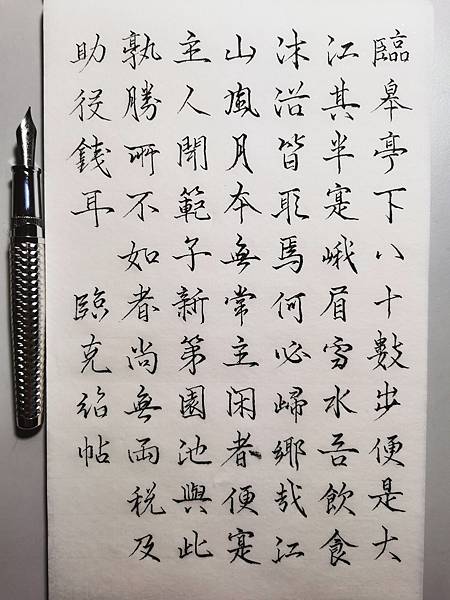 臨皋亭下八十數步便是大
江其半寔峨眉雪水吾飲食
沐浴皆取焉何必歸鄉哉江
山風月本無常主閑者便寔
主人聞範子新第園池與此
孰勝所不如者尚無兩税及
助役錢耳 臨克紹帖